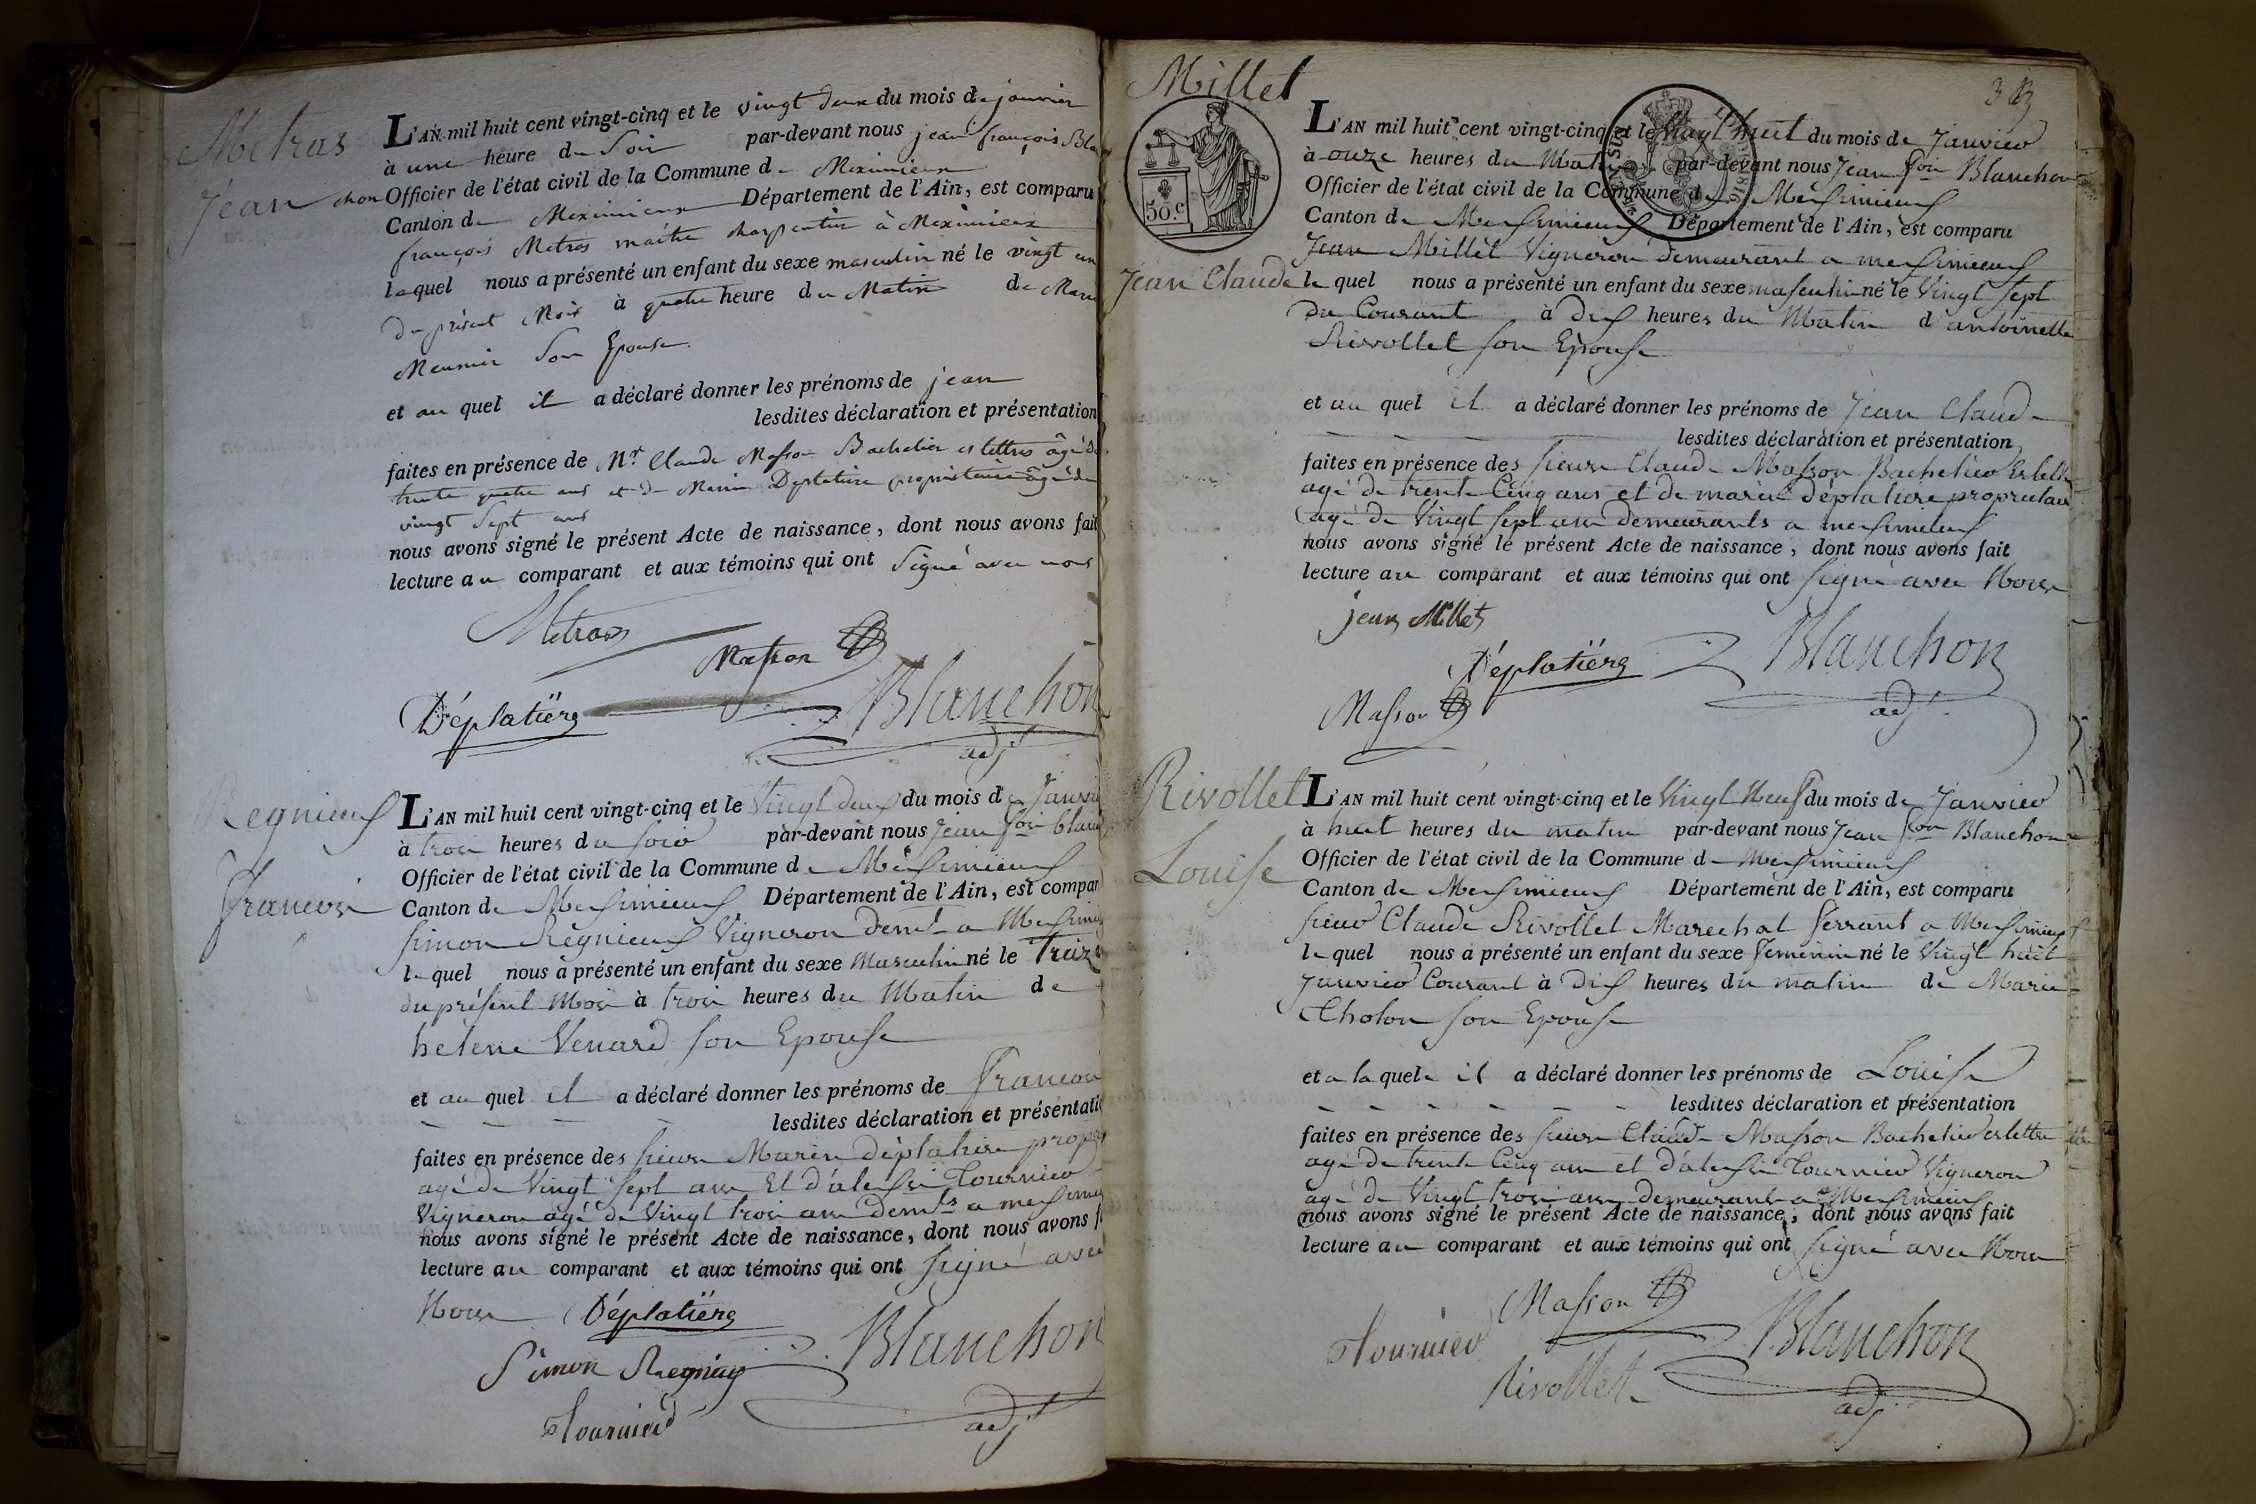 Metras
Jean
L'AN mil huit cent vingt-cinq et le vingt deux du mois de janvier
à une heure du Soir par-devant nous jean françois Blan
chon Officier de l'état civil de la Commune de Meximieux
Canton de Meximieux Département de l'Ain, est comparu
françois Metras maitre charpentier à Meximieux
lequel nous a présenté un enfant du sexe masculin né le vingt un
du présent Mois à quatre heure du Matin de Marie
Meunier Son Epouse
et au quel il a déclaré donner les prénoms de jean
lesdites déclaration et présentation
faites en présence de Mr. Claude Masson Bachelier es lettres âgé de
trente quatre ans et de Marin Deplatière propriétaire âgé de
vingt Sept ans
nous avons signé le présent Acte de naissance, dont nous avons fait
lecture au comparant et aux témoins qui ont Signé avec nous
Metras
Masson
Déplatière
Blanchon
adj
Regnieux
francois
L'AN mil huit cent vingt-cinq et le Vingt deux du mois de Janvi
à trois heures du soir par-devant nous Jean fois blan
Officier de l'état civil de la Commune de Mesimieux
Canton de Mesimieux Département de l'Ain, est compar
simon Regnieux Vigneron demt a Mesimie
le quel nous a présenté un enfant du sexe Masculin né le Treize
du présent Mois à trois heures du Matin de
helene Venard son Epouse
et au quel il a déclaré donner les prénoms de francois
lesdites déclaration et présentati
faites en présence des sieurs Marin déplatiere prop
agé de Vingt sept ans Et d'alexsis Tournier
Vigneron agé de Vingt trois ans demts a mesimie
nous avons signé le présent Acte de naissance, dont nous avons f
lecture au comparant et aux témoins qui ont signé avec
Nous Déplatière
Simon Regniey
Blanchon
Tournier
adj
Millet
Jean Claude
50.c
33
L'AN mil huit cent vingt-cinq et le vingt huit du mois de Janvier
à onze heures du Matin par-devant nous Jean fois Blanchon
Officier de l'état civil de la Commune de Mesimieux
Canton de Mesimieux Département de l'Ain, est comparu
Jean Millet Vigneron demeurant a mesimieux
le quel nous a présenté un enfant du sexe masculin né le Vingt sept
du Courant à dix heures du Matin d'antoinette
Rivollet son Epouse
et au quel il a déclaré donner les prénoms de Jean Claude
lesdites déclaration et présentation
faites en présence des sieurs Claude Masson Bachelier Es lettre
agé de trente Cinq ans et de marin déplatiere proprietaire
agé de Vingt sept ans demeurants a mesimieux
nous avons signé le présent Acte de naissance, dont nous avons fait
lecture au comparant et aux témoins qui ont signé avec Nous
jean Millet
Déplatière
Blanchon
Masson
adj
Rivollet
Louise
L'AN mil huit cent vingt-cinq et le Vingt Neuf du mois de Janvier
à huit heures du matin par-devant nous Jean fois Blanchon
Officier de l'état civil de la Commune de Mesimieux
Canton de Mesimieux Département de l'Ain, est comparu
sieur Claude Rivollet Marechal ferrant a Mesimieux
le quel nous a présenté un enfant du sexe feminin né le Vingt huit
Janvier Courant à Dix heures du matin de Marie
Cholon son Epouse
et a la quele il a déclaré donner les prénoms de Louise
lesdites déclaration et présentation
faites en présence des sieurs Claude Masson Bachelier es lettre
agé de trente Cinq ans et d'alexsis Tournier Vigneron
agé de Vingt trois ans demeurant a Mesimieux
nous avons signé le présent Acte de naissance, dont nous avons fait
lecture au comparant et aux témoins qui ont signé avec Nous
Masson
Tournier
Blanchon
Rivollet
adj